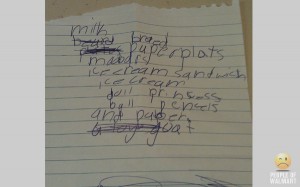 milk
bread
paperplats
ice cream sandwich
ice cream
doll prinsess
ball pensels
and paper
PEOPLE OF
WALMART